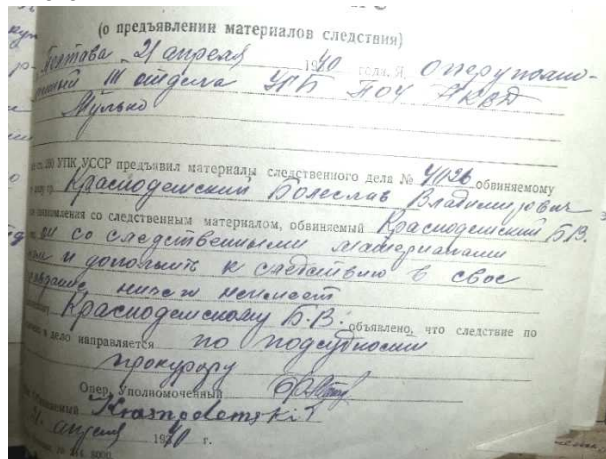 (о предъявлении материалов следствия)
Полтава 21 апреля 1940 года. Я, Оперуполно-
моченный III отдела УГБ ПОУ НКВД
Мулько
200 УПК УССР предъявил материалы следственного дела № 4026 обвиняемому
Краснодемский Болеслав Владимирович
со следственным материалом, обвиняемый Краснодемский Б.В.
со следственными материалами
и дополнить к следствию в свое
ничего неимеет
Краснодемскому Б.В. объявлено, что следствие по
дело направляется по подсудности
прокурору
Опер. Уполномоченный
Krasnodemski
21 апреля 1940 г.